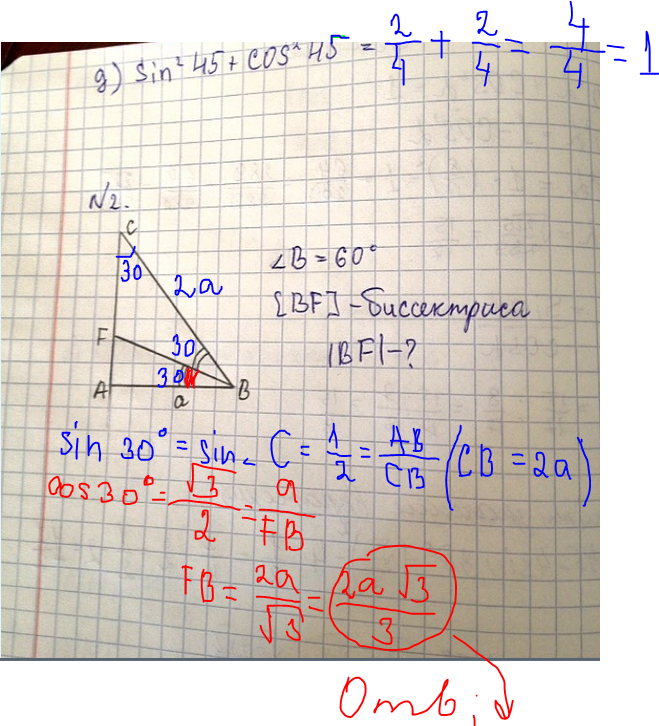 д) sin² 45 + cos² 45 = 2/4 + 2/4 = 4/4 = 1
N2.
C
30
2a
F
30
30
A
a
B
∠B = 60°
[BF] - биссектриса
|BF| - ?
sin 30° = sin ∠ C = 1/2 = AB/CB (CB = 2a)
cos 30° = √3/2 = a/FB
FB = 2a/√3 = 2a√3/3
Ответ: